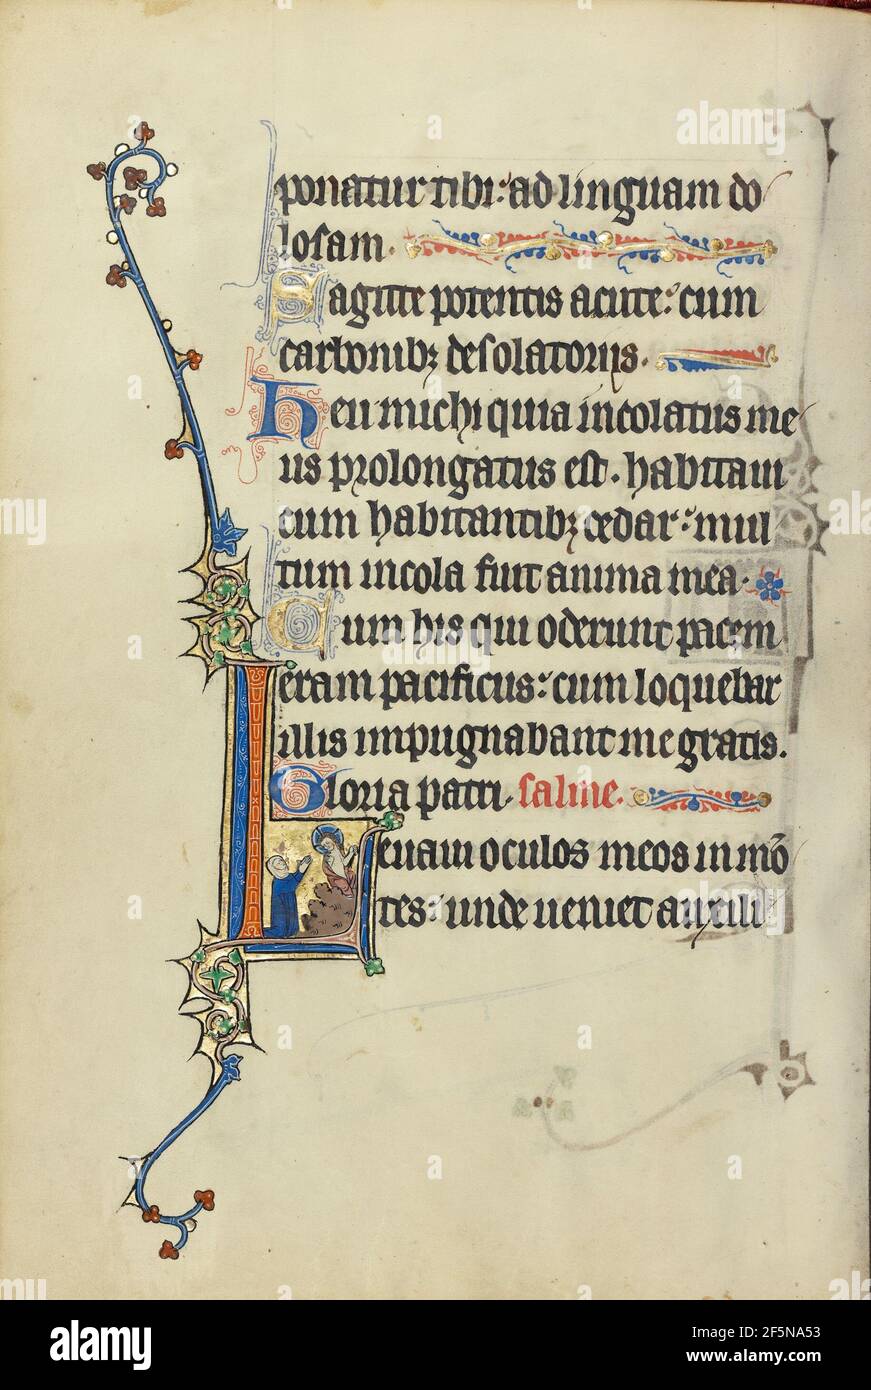 ponatur tibi: ad linguam do
losam.
Sagitte potentis acute: cum
carbonibꝫ desolatoriis.
Heu michi quia incolatus me
us prolongatus est. habitaui
cum habitantibꝫ cedar: mul
tum incola fuit anima mea.
Cum his qui oderunt pacem
eram pacificus: cum loquebar
illis impugnabant me gratis.
Gloria patri. salme.
Leuaui oculos meos in mō
tes: unde ueniet auxili
alamy
alamy
Image ID: 2F5NA53
www.alamy.com